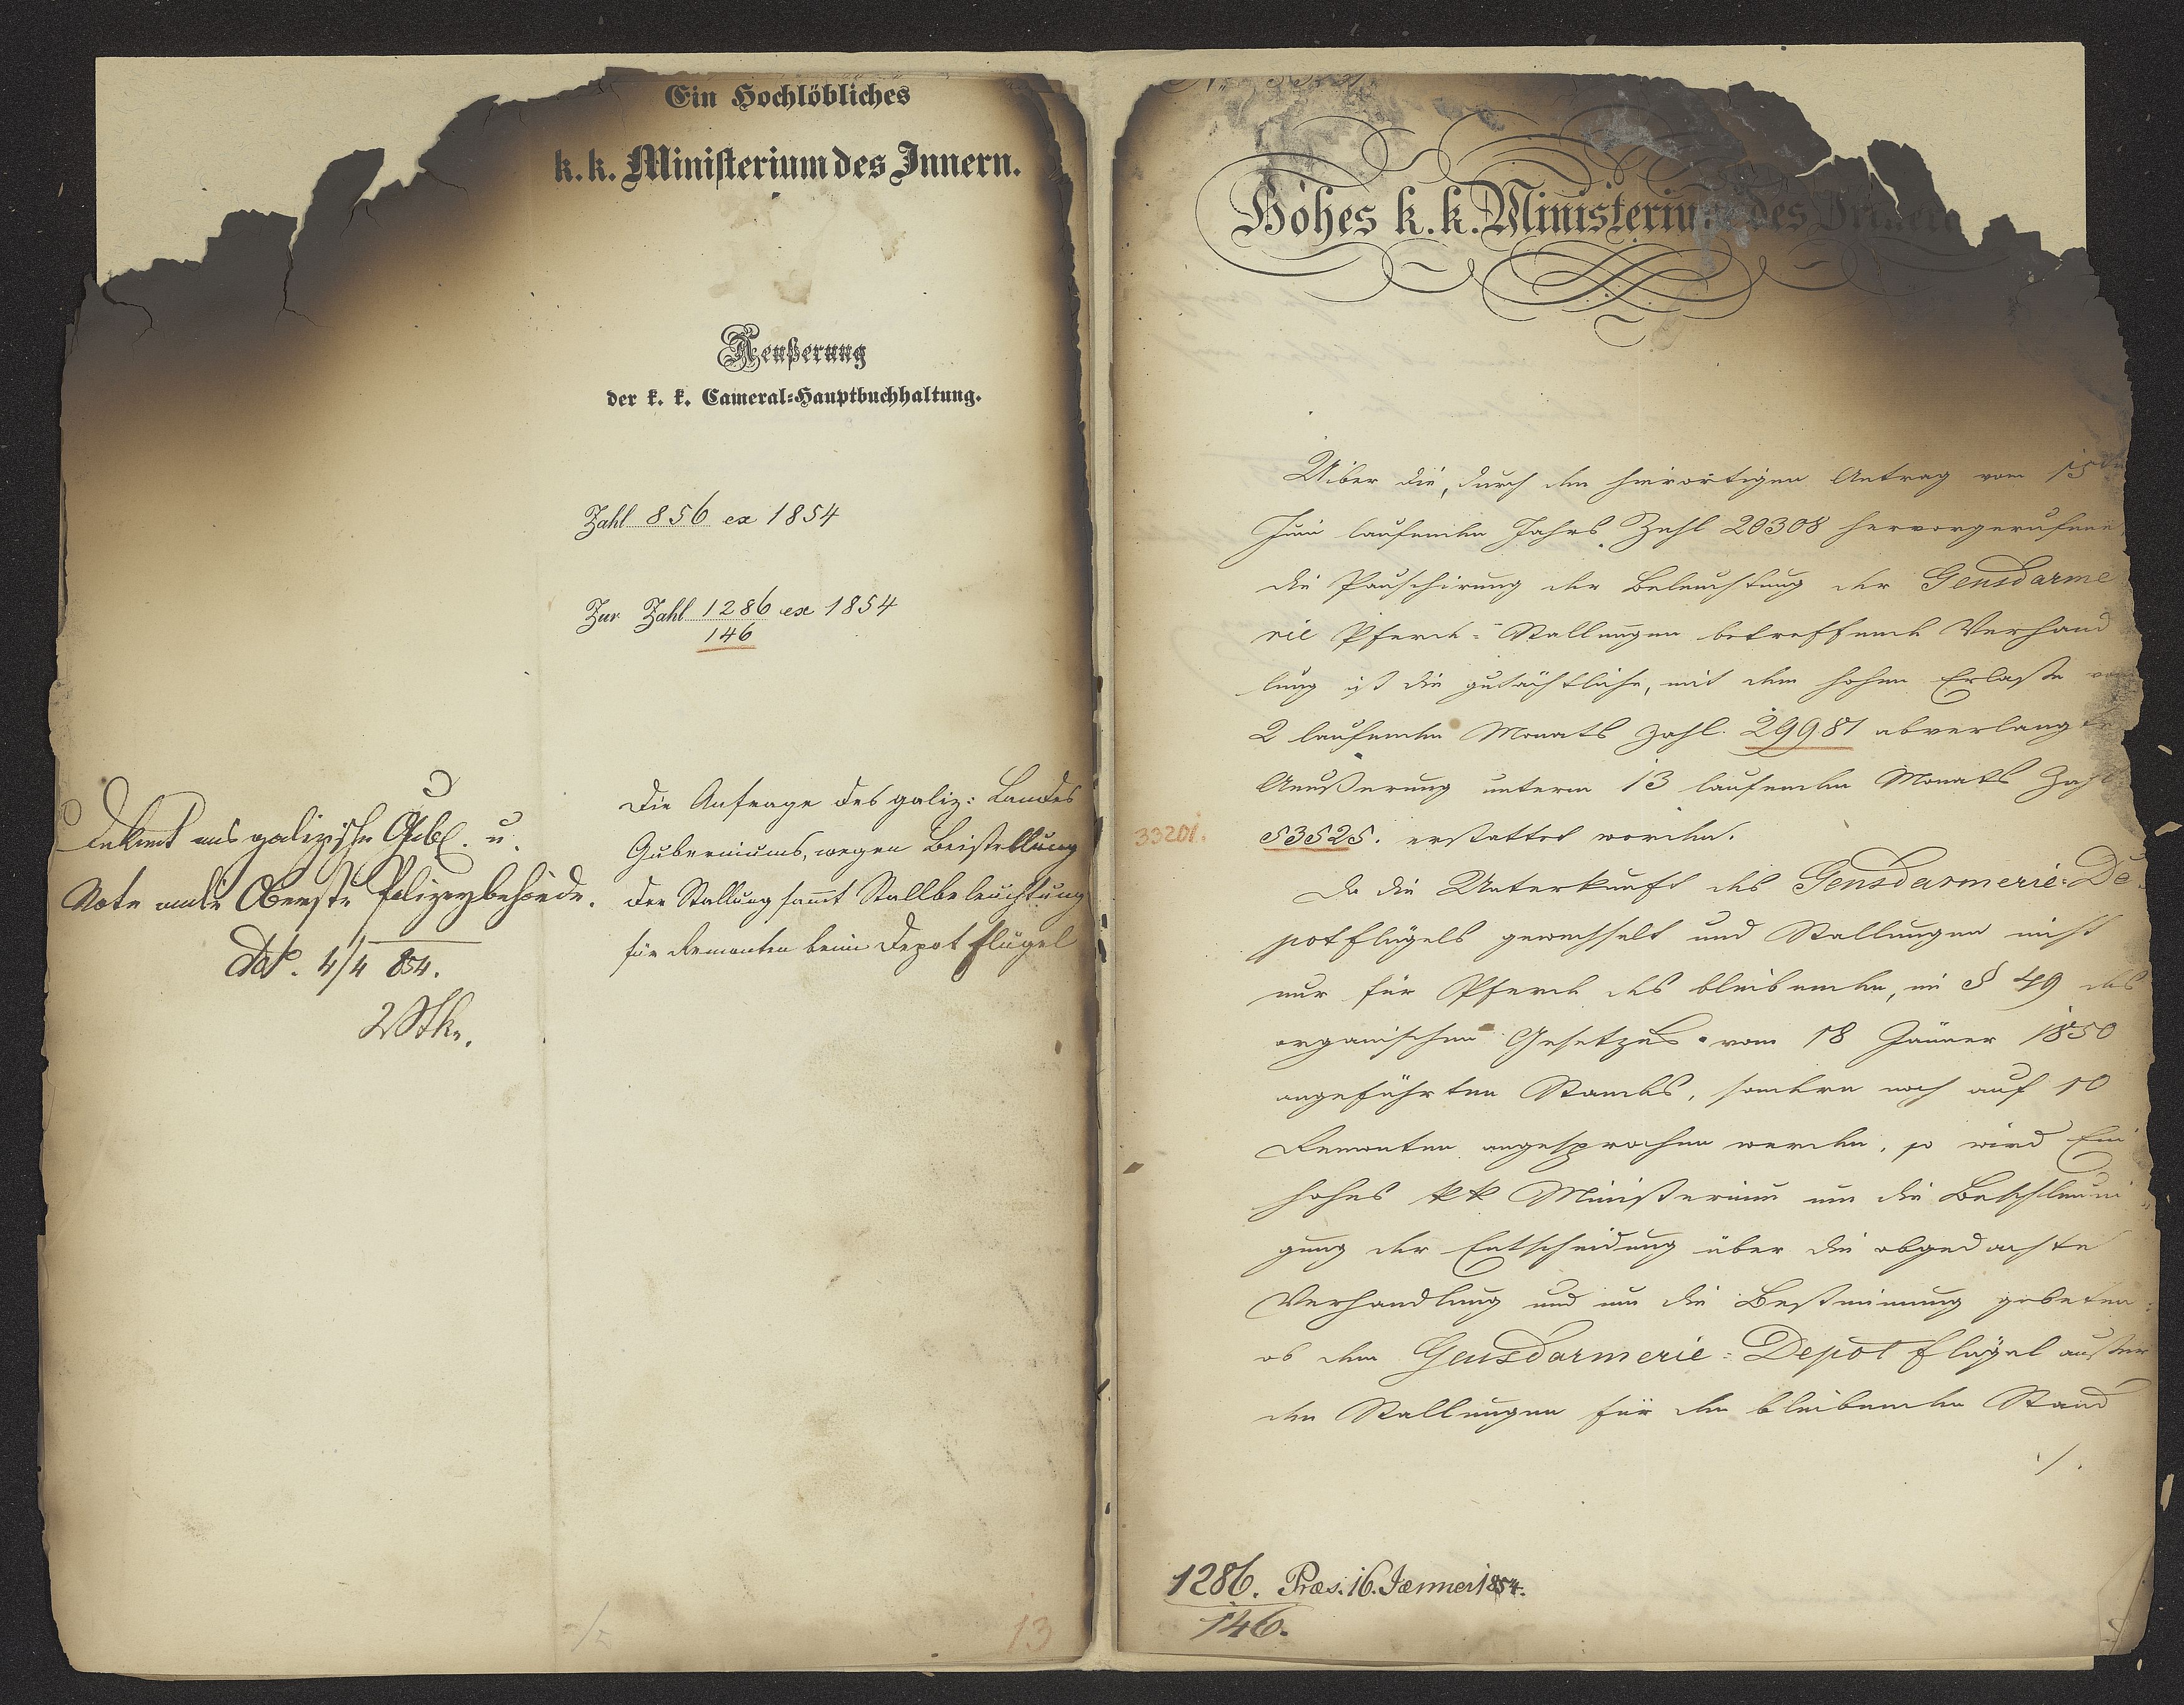 Ein Hochlöbliches
k. k. Ministerium des Innern.
Aeußerung
der k. k. Cameral-Hauptbuchhaltung.
Zahl 856 ex 1854
Zur Zahl 1286 ex 1854
146
Dekret ans galizische Gubl. u.
Note an die Oberste Polizeybehörde.
4/4 854.
Die Anfrage des galiz: Landes
Guberniums, wegen Beistellung
der Stallung sammt Stallbeleuchtung
für Remonten beim Depot Flügel
13
Hohes k. k. Ministerium des Innern
Uiber die, durch den hierortigen Antrag vom 15ten
Juni laufenden Jahrs Zahl 20308 hervorgerufene
die Pauschirung der Beleuchtung der Gensdarme
rie Pferde-Stallungen betreffende Verhand
lung ist die gutächtliche, mit dem hohen Erlaße vom
2 laufenden Monats Zahl. 29981 abverlangte
Aeußerung unterm 13 laufenden Monats Zahl
33201.
53525. erstattet worden.
Da die Unterkunft des Gensdarmerie-De
potflügels gewechselt und Stallungen nicht
nur für Pferde des bleibenden, im § 49 des
organischen Gesetzes vom 18 Jänner 1850
angeführten Standes, sondern noch auf 10
Remonten angesprochen werden, so wird Ein
hohes kk Ministerium um die Beschleuni
gung der Entscheidung über die obgedachte
Verhandlung und um die Bestimmung gebeten:
ob dem Gensdarmerie-Depot Flügel außer
den Stallungen für den bleibenden Stand
./.
1286. Præs. 16. Jænner 1854.
146.